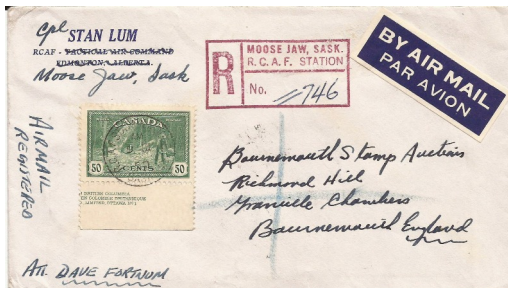 Cpl STAN LUM
RCAF - TACTICAL AIR COMMAND
EDMONTON, ALBERTA
Moose Jaw, Sask
R
MOOSE JAW, SASK.
R.C.A.F. STATION
No. 746
BY AIR MAIL
PAR AVION
AIRMAIL
REGISTERED
CANADA
50 CENTS 50
BRITISH COLUMBIA
COLOMBIE BRITANNIQUE
LIMITED, OTTAWA No 1
Bournemouth Stamp Auctions
Richmond Hill
Granville Chambers
Bournemouth England
Att. DAVE FORTNUM